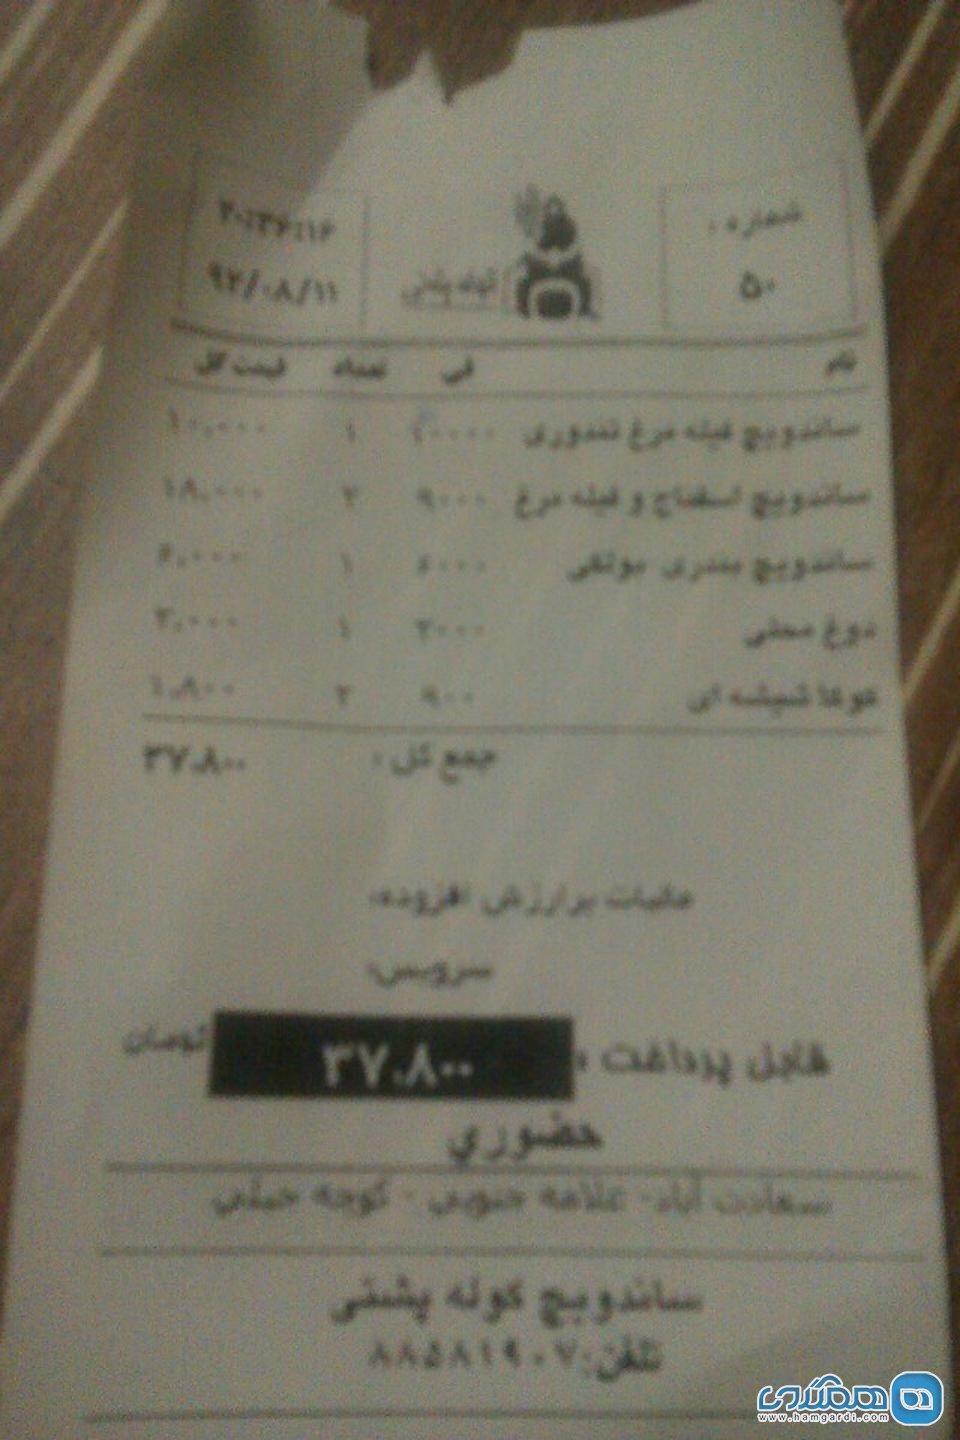 شماره :
۵۰
کوله پشتی
۲۰:۳۶:۱۶
۹۲/۰۸/۱۱
نام فی تعداد قیمت کل
ساندویچ فیله مرغ تندوری ۱۰۰۰۰ ۱ ۱۰,۰۰۰
ساندویچ اسفناج و فیله مرغ ۹۰۰۰ ۲ ۱۸,۰۰۰
ساندویچ بندری بوتکی ۶۰۰۰ ۱ ۶,۰۰۰
دوغ محلی ۲۰۰۰ ۱ ۲,۰۰۰
کوکا شیشه ای ۹۰۰ ۲ ۱,۸۰۰
جمع کل : ۳۷,۸۰۰
مالیات برارزش افزوده:
سرویس:
قابل پرداخت : ۳۷,۸۰۰ تومان
حضوري
سعادت آباد- علامه جنوبی - کوچه حقی
ساندویچ کوله پشتی
تلفن: ۸۸۵۸۱۹۰۷
همگردی
www.hamgardi.com